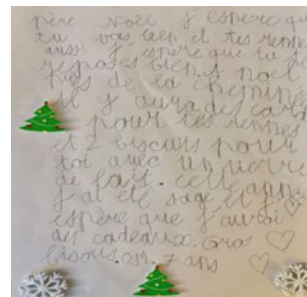 père noël j'espère que
tu vas bien et tes rennes
aussi j'espère que tu te
reposes bien. à noël
de la cheminée
il y aura des
pour tes rennes
et 2 biscuits pour
toi avec un verre
de lait. cette
j'ai été sage et j'
espère que j'aurai
des cadeaux. Gros
bisous. 7 ans